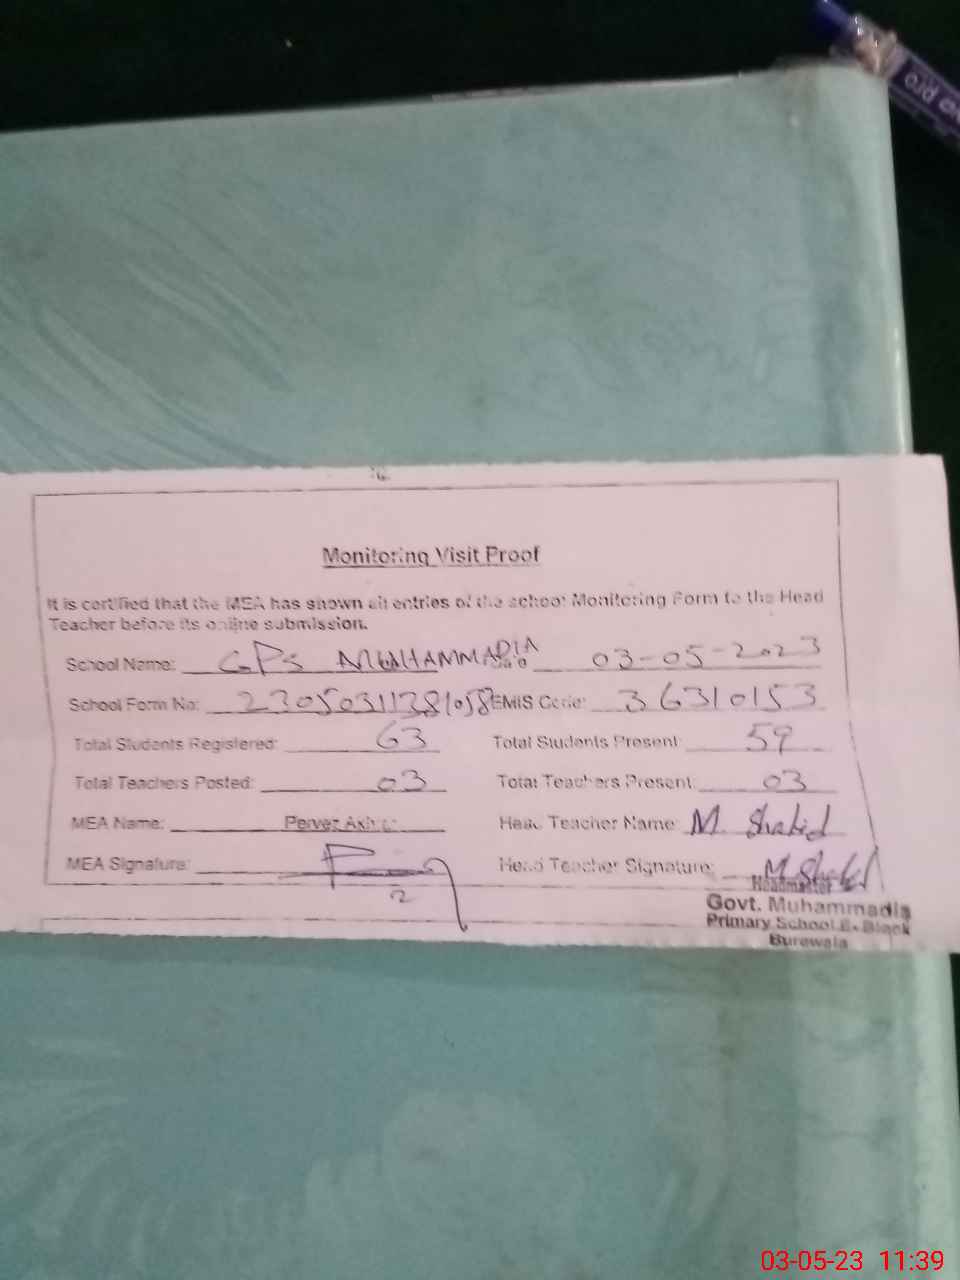 pro
Monitoring Visit Proof
It is certified that the MEA has shown all entries of the school Monitoring Form to the Head
Teacher before its online submission.
School Name: GPS MUHAMMADIA Date 03-05-2023
School Form No: 23050311381058 EMIS Code: 36310153
Total Students Registered: 63 Total Students Present: 59
Total Teachers Posted: 03 Total Teachers Present: 03
MEA Name: Pervez Akhtar Head Teacher Name: M. Shahid
MEA Signature: Head Teacher Signature: M. Shahid
Headmaster
Govt. Muhammadia
Primary School E-Block
Burewala
03-05-23 11:39